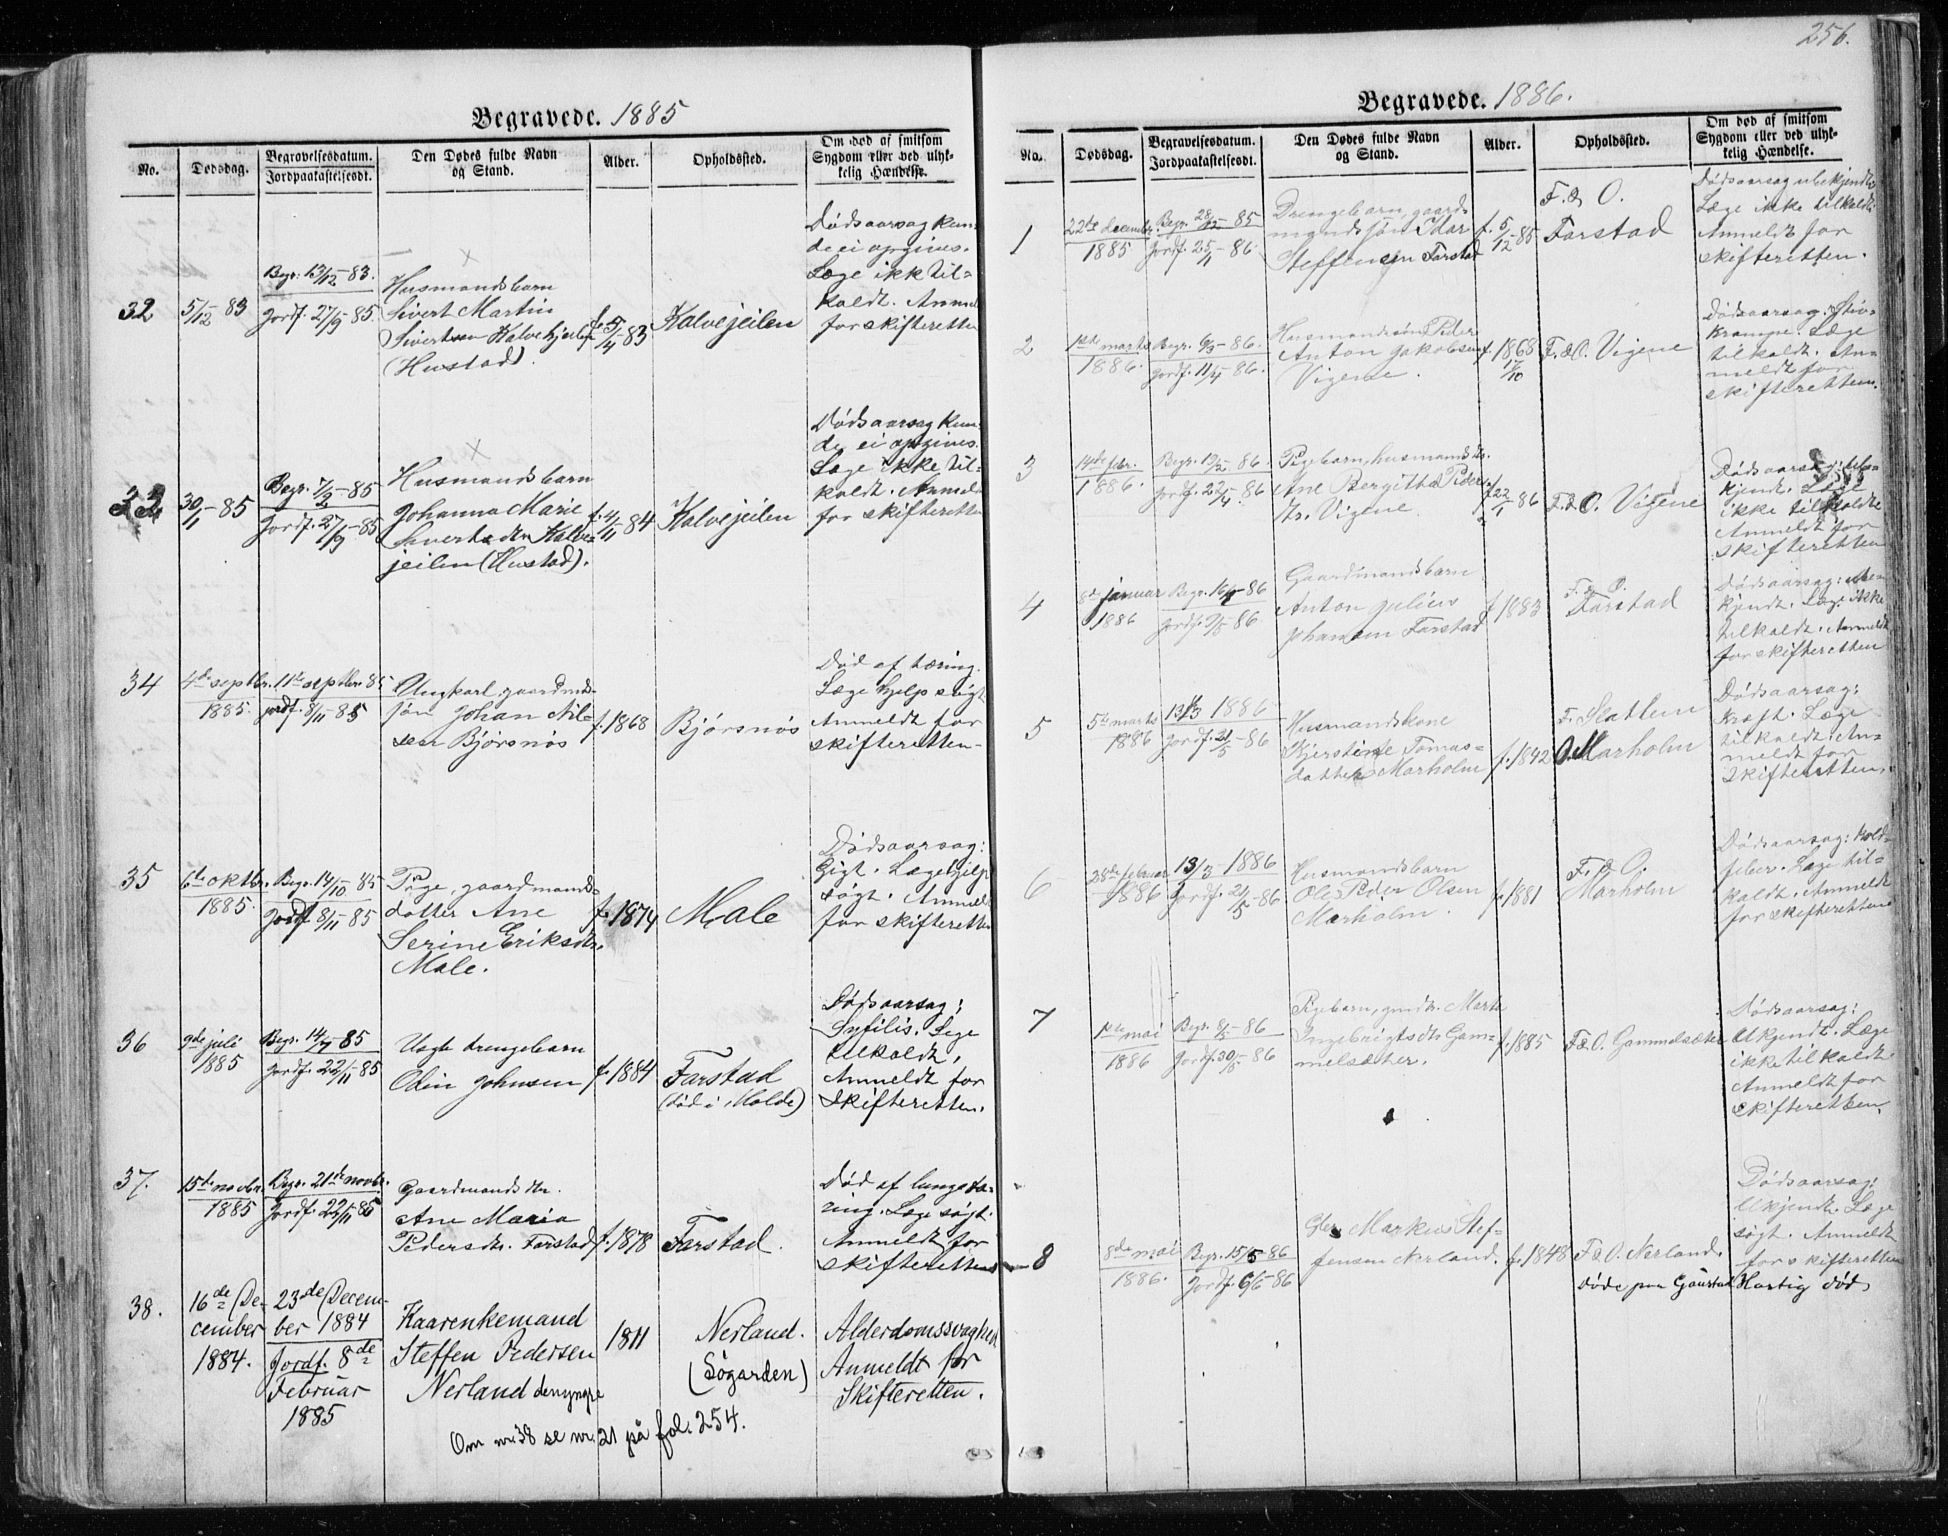 256.
Begravede. 1885
No.
Dødsdag.
Begravelsesdatum.
Jordpaakastelsesdt.
Den Dødes fulde Navn
og Stand.
Alder.
Opholdssted.
Om død af smitsom
Sygdom eller ved ulyk-
kelig Hændelse.
32
5/12 83
Begr. 13/12-83.
Jordf. 27/9-85.
Husmandsbarn
Sivert Martin
Sivertsen Kalvehjeilen
(Hustad).
f. 5/4 83
Kalvejeilen
Dødsaarsag kun-
de ei opgives.
Læge ikke til-
kaldt. Anmel
for skifteretten
33
30/1-85
Begr. 7/2-85
Jordf. 27/9-85
Husmandsbarn
Johanna Marie
Sivertsdtr Kalve-
jeilen (Hustad).
f. 4/11-84
Kalvejeilen
Dødsaarsag kun-
de ei opgives.
Læge ikke til-
kaldt. Anmel
for skifteretten
34
4de septbr.
1885.
11te septbr. 85
Jordf. 8/11-85
Ungkarl, gaardmds-
søn Johan Nil-
sen Bjørsnøs
f. 1868
Bjørsnøs
Død af tæring.
Læge hjelp søgt
Anmeldt for
skifteretten-
35
6te oktbr.
1885.
Begr. 14/10-85
Jordf. 8/11 85
Pige, gaardmands-
datter Ane
Serine Eriksdtr.
Male.
f. 1874
Male
Dødsaarsag:
Gigt. Lægehjelp
søgt. Anmel
for skifteretten
36
9de juli
1885
Begr. 14/7-85
Jordf. 22/11 85
Uægte drengebarn
Odin Johnsen
f. 1884
Farstad
(død i Molde)
Dødsaarsag:
Syfilis. Læge
tilkaldt,
Anmeldt for
Skifteretten.
37.
15de novbr.
1885
Begr. 21de novbr.
Jordf. 22/11 85
Gaardmandsdtr.
Ane Maria
Pedersdtr. Farstad
f. 1878
Farstad.
Død af lungetæ-
ring. Læge søgt.
Anmeldt for
skifteretten
38.
16de De-
cember
1884.
23de Decem-
ber 1884
Jordf. 8de
Februar
1885
Kaarenkemand
Steffen Pedersen
Nerland den yngre
1811
Nerland.
(Søgarden)
Alderdomssvaghed
Anmeldt for
Skifteretten.
Om nr. 38 se nr. 21 på fol. 254.
Begravede. 1886.
No.
Dødsdag.
Begravelsesdatum.
Jordpaakastelsesdt.
Den Dødes fulde Navn
og Stand.
Alder.
Opholdssted.
Om død af smitsom
Sygdom eller ved ulyk-
kelig Hændelse.
1
22de decembr.
1885
Begr. 28/12-85
Jordf. 25/1-86.
Drengebarn, gaard-
mandssøn Idar
Steffensen Farstad
f. 5/12-85
F. & O.
Farstad
Dødsaarsag ubekjendt
Læge ikke tilkaldt
Anmeldt for
skifteretten.
2
1ste marts
1886.
Begr. 6/3-86.
Jordf. 11/4 86.
Husmandssøn Peder
Anton Jakobsen
Vigene.
f. 1868
17/10
F. & O. Vigene
Dødsaarsag: Stiv-
krampe. Læge
tilkaldt. An-
meldt for
skifteretten.
3
14de febr.
1886.
Begr. 19/2-86.
Jordf. 22/4-86
Pigebarn, husmandsdtr.
Ane Bergitha Peders-
dtr. Vigene.
f. 22/1-86
F. & O. Vigene
Dødsaarsag: Ube-
kjendt. Læge
ikke tilkaldt
Anmeldt for
skifteretten
4
8de januar
1886
Begr. 16/1-86
Jordf. 9/5-86
Gaardmandsbarn
Anton Julius
Johansen Farstad
f. 1883
F. & O.
Farstad
Dødsaarsag: Ube-
kjendt. Læge ikke
tilkaldt. Anmeldt
for skifteretten
5
5te marts
1886
13/3 1886
Jordf. 21/5-86
Husmandskone
Kjerstine Tomas-
datter Marholm
f. 1842
F. Slatten
O. Marholm
Dødsaarsag:
Kræft. Læge
tilkaldt. An-
meldt for
Skifteretten.
6
28de februar
1886
13/3-1886
Jordf. 21/5-86
Husmandsbarn
Ole Peder Olsen
Marholm.
f. 1881
F. & O.
Marholm
Dødsaarsag: Kold-
feber. Læge til-
kaldt. Anmeldt
for skifteretten
7
1ste mai
1886
Begr. 8/5-86
Jordf. 30/5-86
Pigebarn, gmdtr. Marte
Ingebrigtsdtr. Gam-
melsæter.
f. 1885
F. & O. Gammelsæter
Dødsaarsag:
Ukjendt. Læge
ikke tilkaldt
Anmeldt for
skifteretten.
8
8de mai
1886.
Begr. 15/5-86
Jordf. 6/6-86
Markus Stef-
fensen Nerland.
f. 1848
F. & O. Nerland.
Døde paa Gaustad
Dødsaarsag:
Ukjendt. Læge
søgt. Anmeldt
for skifteretten
Hastig død